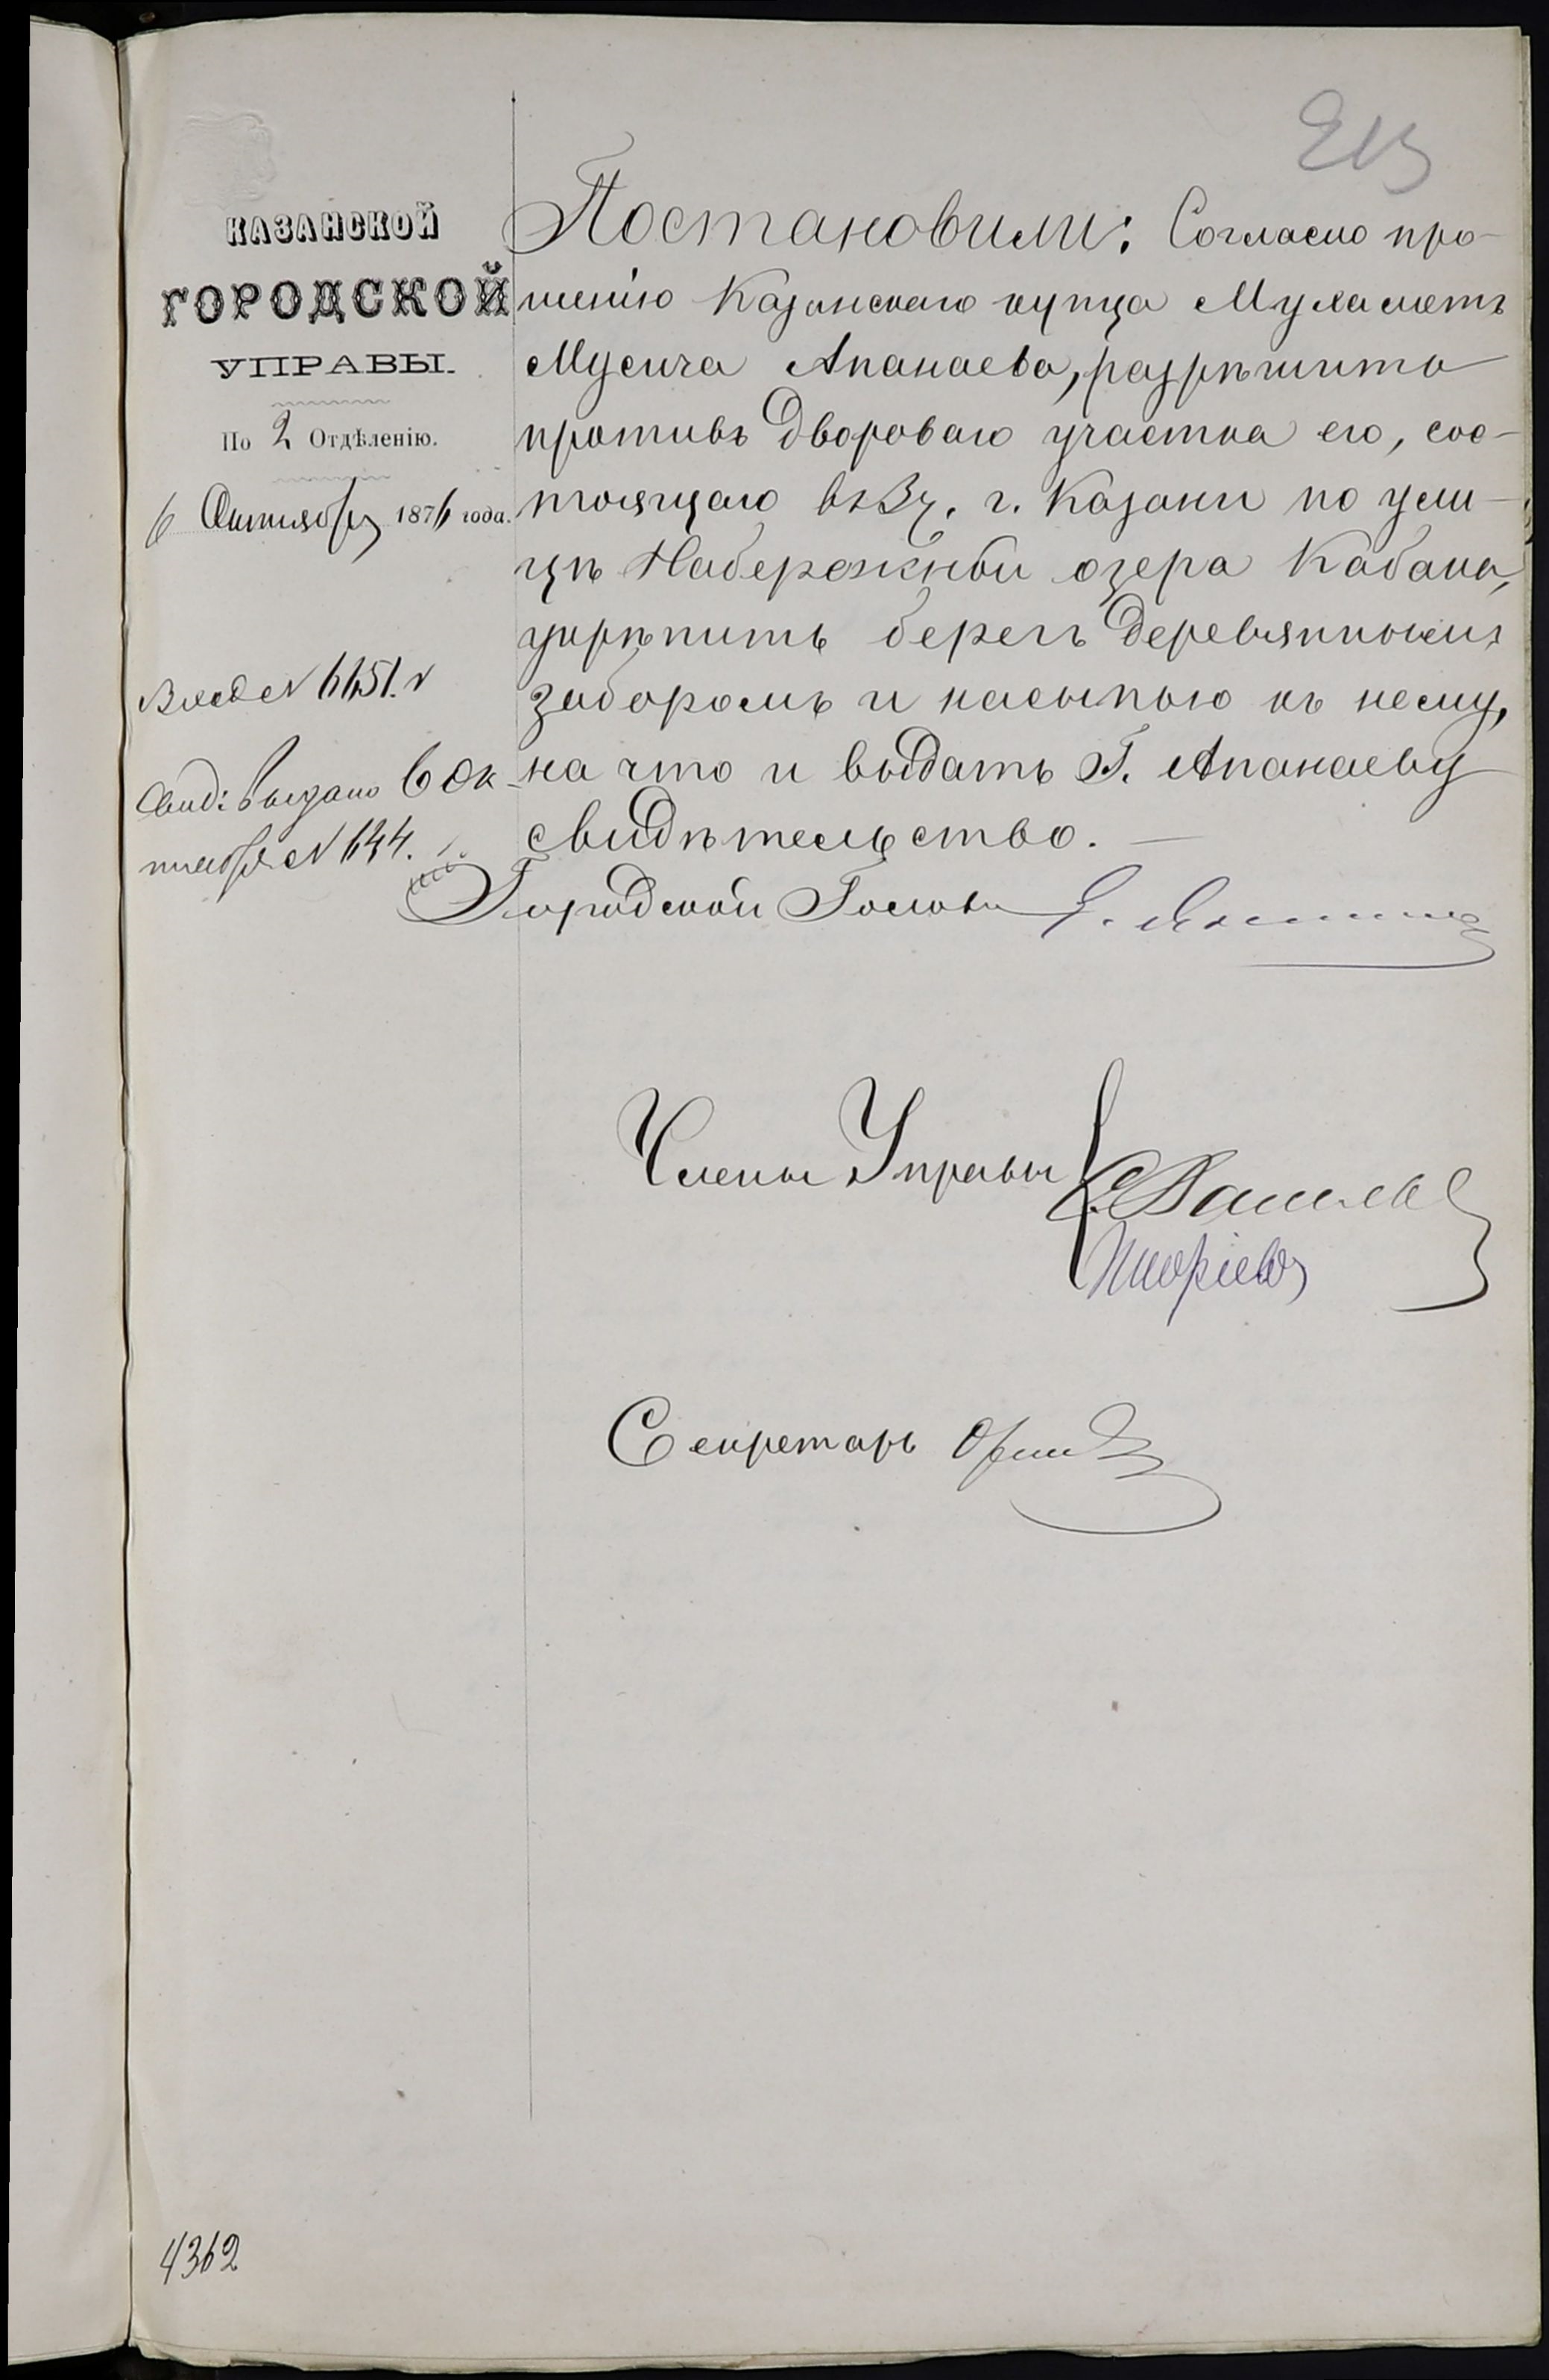 213
КАЗАНСКОЙ
ГОРОДСКОЙ
УПРАВЫ.
По 2 Отдѣленію.
6 Октября 1876 года.
Вход № 6651.
Свид: выдано 6 Ок-
тября № 644.
Постановили: Согласно про-
шенію Казанскаго купца Мухаметъ
Мусича Апанаева, разрѣшить
противъ двороваго участка его, сос-
тоящаго въ 3 ч. г. Казани по ули-
цѣ Набережной озера Кабана,
укрѣпить берегъ деревяннымъ
заборомъ и насыпью къ нему,
на что и выдать Г. Апанаеву
свидѣтельство. —
Городской Голова
Члены Управы
Секретарь
4362